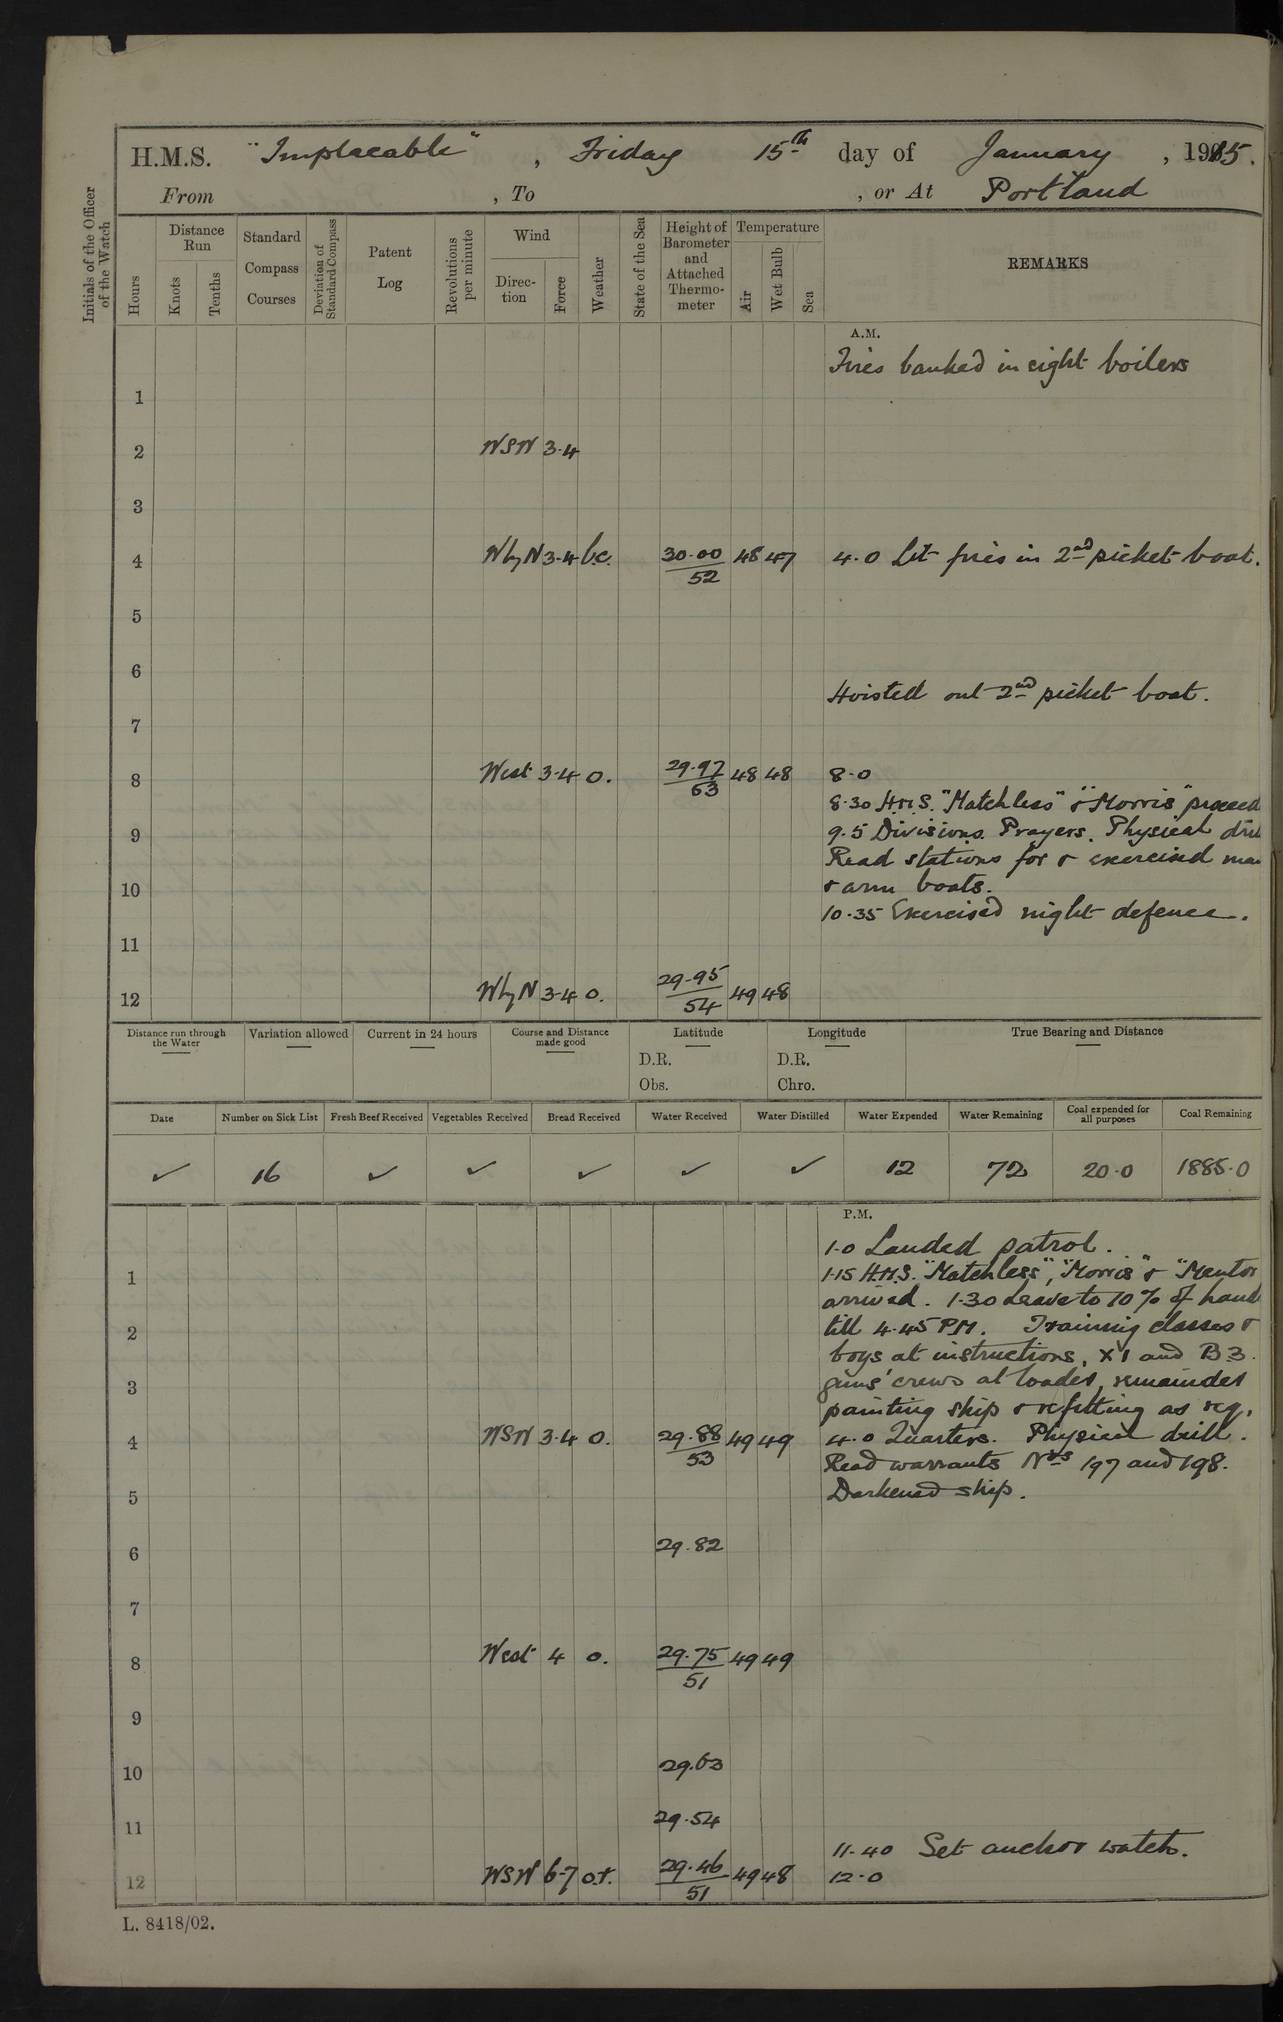 H.M.S. "Implacable", Friday 15th day of January, 1915.
From , To , or At Portland
Initials of the Officer of the Watch
Hours
Distance Run
Knots
Tenths
Standard Compass Courses
Deviation of Standard Compass
Patent Log
Revolutions per minute
Wind
Direction
Force
Weather
State of the Sea
Height of Barometer and Attached Thermometer
Temperature
Air
Wet Bulb
Sea
REMARKS
A.M.
Fires banked in eight boilers
1
2 WSW 3·4
3
4 WbyN 3·4 b.c. 30·00/52 48 47 4·0 Lit fires in 2nd picket boat.
5
6
Hoisted out 2nd picket boat.
7
8 West 3·4 o. 29·97/53 48 48 8·0
8·30 H.M.S. "Matchless" & "Morris" proceed
9·5 Divisions. Prayers. Physical
9
Read stations for & exercised
10 & arm boats.
10·35 Exercised night defence.
11
12 WbyN 3·4 o. 29·95/54 49 48
Distance run through the Water
Variation allowed
Current in 24 hours
Course and Distance made good
Latitude
D.R.
Obs.
Longitude
D.R.
Chro.
True Bearing and Distance
Date Number on Sick List Fresh Beef Received Vegetables Received Bread Received Water Received Water Distilled Water Expended Water Remaining Coal expended for all purposes Coal Remaining
✓ 16 ✓ ✓ ✓ ✓ ✓ 12 72 20·0 1885·0
P.M.
1·0 Landed patrol.
1 1·15 H.M.S. "Matchless", "Morris" & "Mentor
arrived. 1·30 Leave to 10% of hand
2 till 4·45 P.M. Training classes &
boys at instructions, X1 and B3
3 guns' crews at loader, remainder
painting ship & refitting as req.
4 WSW 3·4 o. 29·88/53 49 49 4·0 Quarters. Physical drill.
Read warrants Nos 197 and 198.
5 Darkened ship.
6 29·82
7
8 West 4 o. 29·75/51 49 49
9
10 29·63
11 29·54
11·40 Set anchor watch.
12 WSW 6-7 o.r. 29·46/51 49 48 12·0
L. 8418/02.